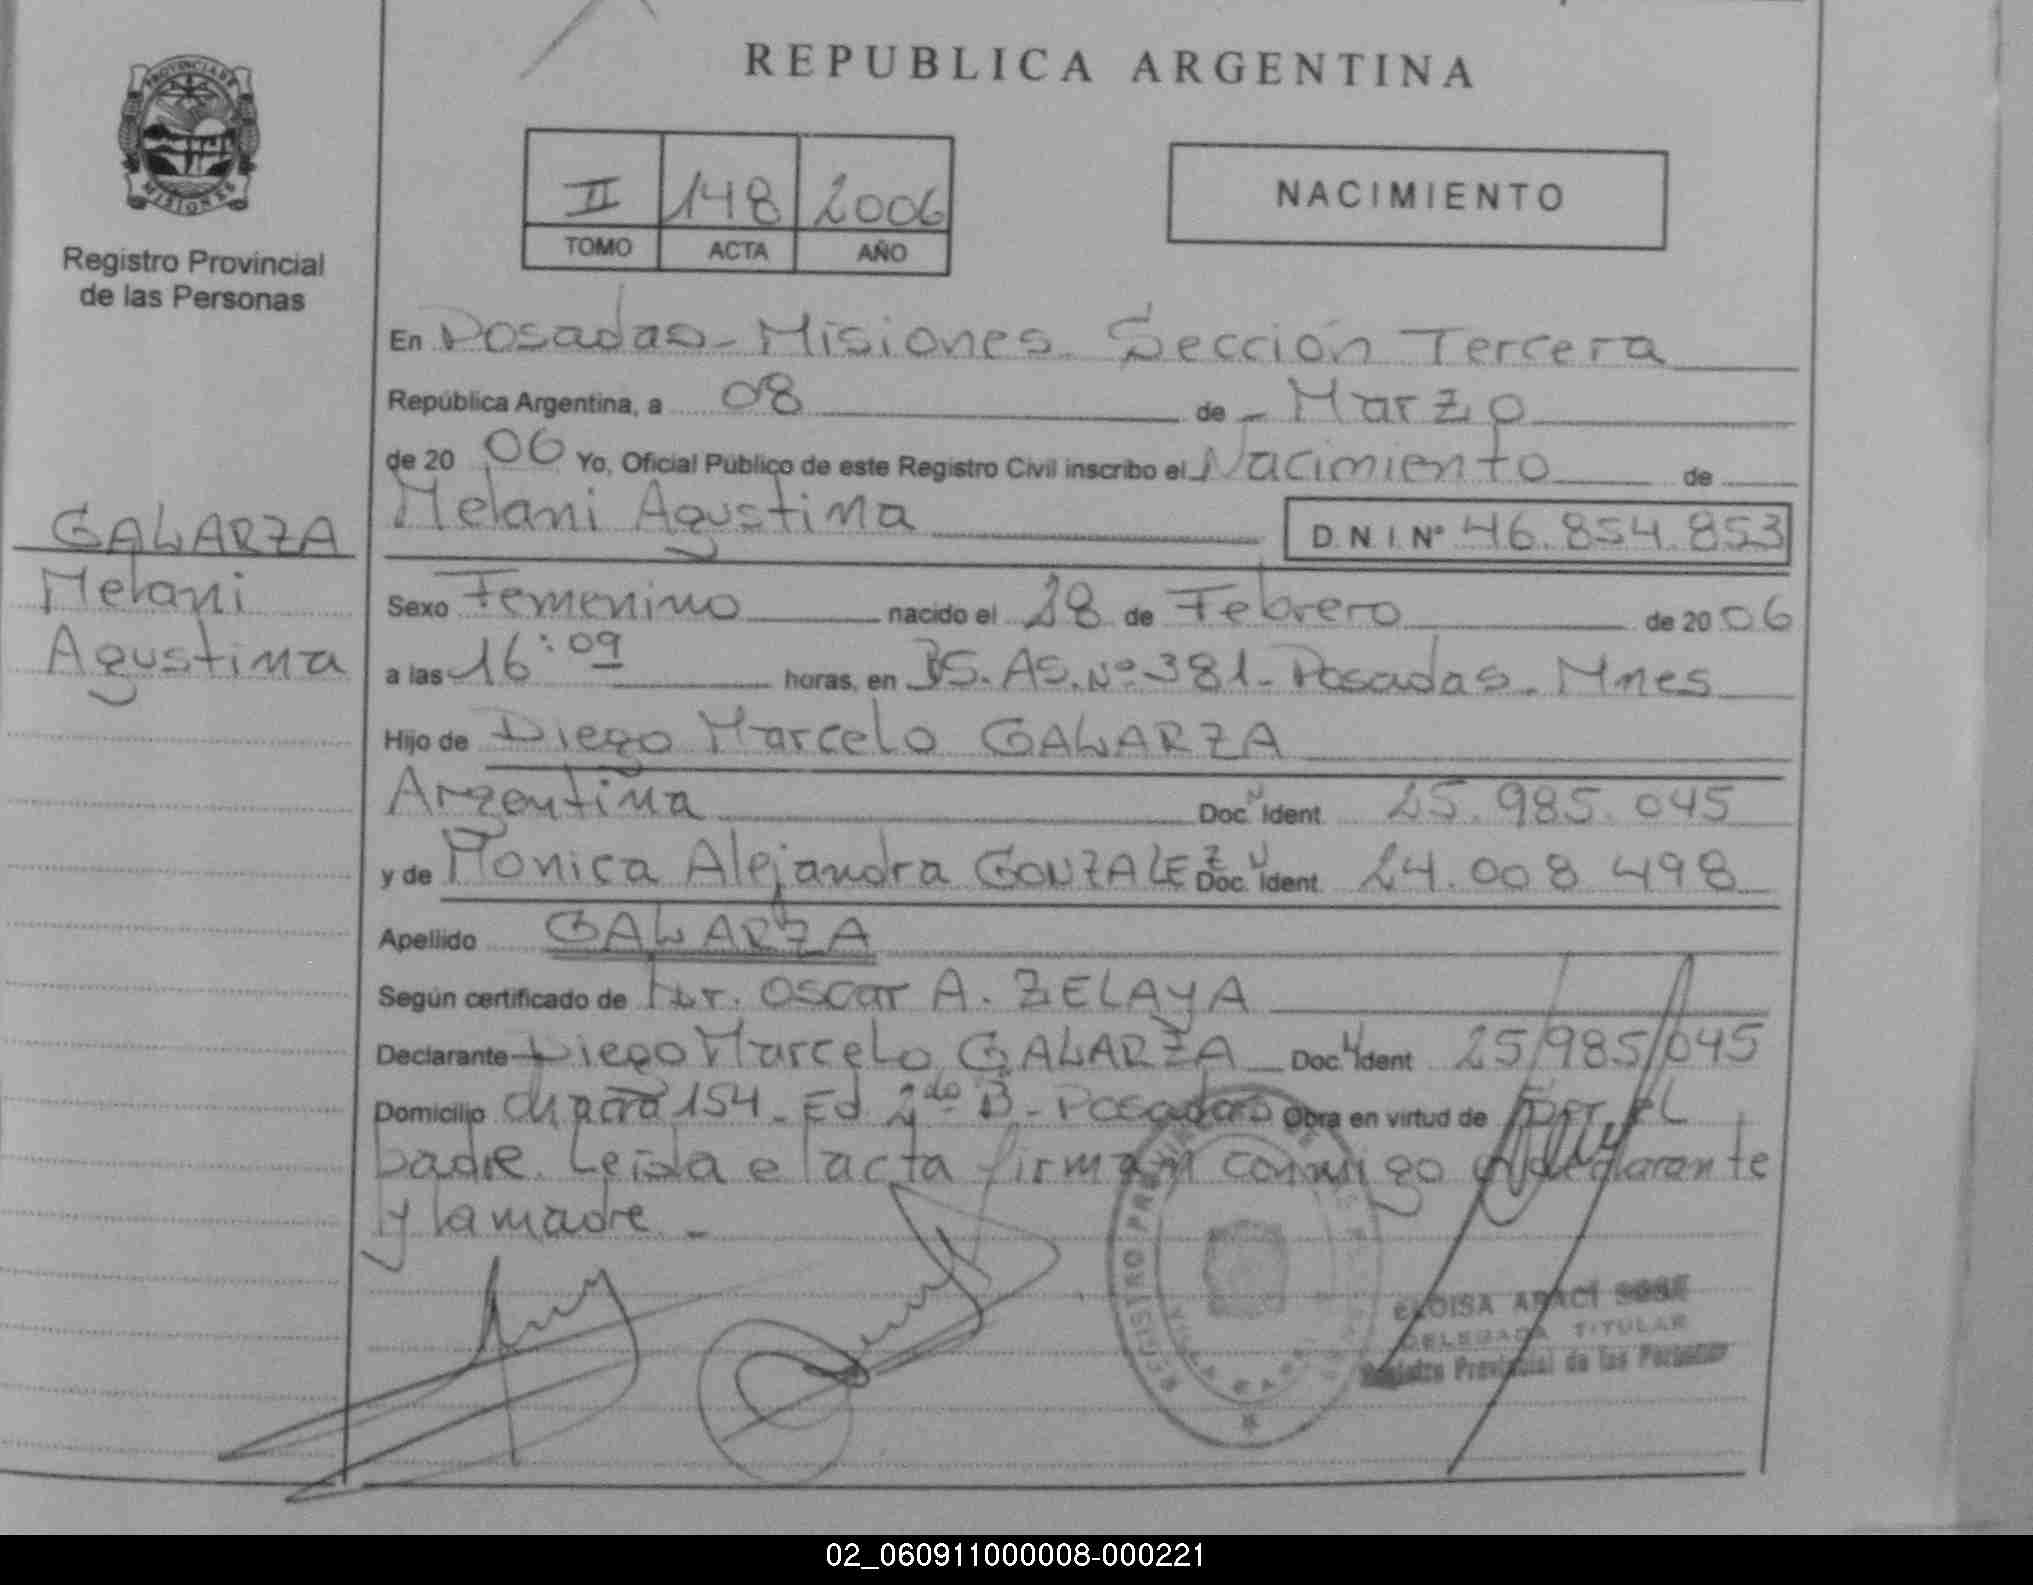 PROVINCIA DE
MISIONES
Registro Provincial
de las Personas
GALARZA
Melani
Agustina
REPUBLICA ARGENTINA
II 148 2006
TOMO ACTA AÑO
NACIMIENTO
En Posadas - Misiones. Sección Tercera
República Argentina, a 08 de - Marzo
de 20 06 Yo, Oficial Público de este Registro Civil inscribo el Nacimiento de
Melani Agustina D.N.I. Nº 46.854.853
Sexo Femenino nacido el 28 de Febrero de 20 06
a las 16:09 horas, en BS. AS. Nº 381 - Posadas - Mnes
Hijo de Diego Marcelo GALARZA
Argentina Doc. Ident 25.985.045
y de Monica Alejandra GONZALEZ Doc. Ident. 24.008 498
Apellido GALARZA
Según certificado de Dr. OSCAR A. ZELAYA
Declarante Diego Marcelo GALARZA Doc. Ident 25/985/045
Domicilio chacra 154 - Ed. 2do B - Posadas Obra en virtud de Ser el
padre. Leida el acta firman conmigo el declarante
y la madre. -
REGISTRO
ELOISA ARACI SOSE
DELEGADA TITULAR
Registro Provincial de las Personas
02_060911000008-000221